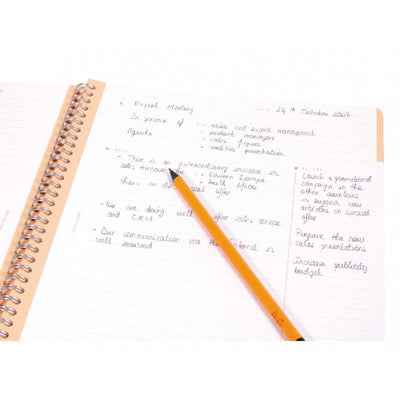 Export Meeting
24th October 2007
In presence of : - sales and event management
- product managers
Agenda : - sales figures
- sensitive presentation
- There is an extraordinary increase in
sales
: - Eastern Europe
- South Africa
thanks to the special offer
- We are doing well after sales service
and CRM
- Our communication via the internet is
well received
Launch a promotional
campaign in the
other countries
suggest new
articles on special
offer
Prepare the new
sales presentations
Increase publicity
budget